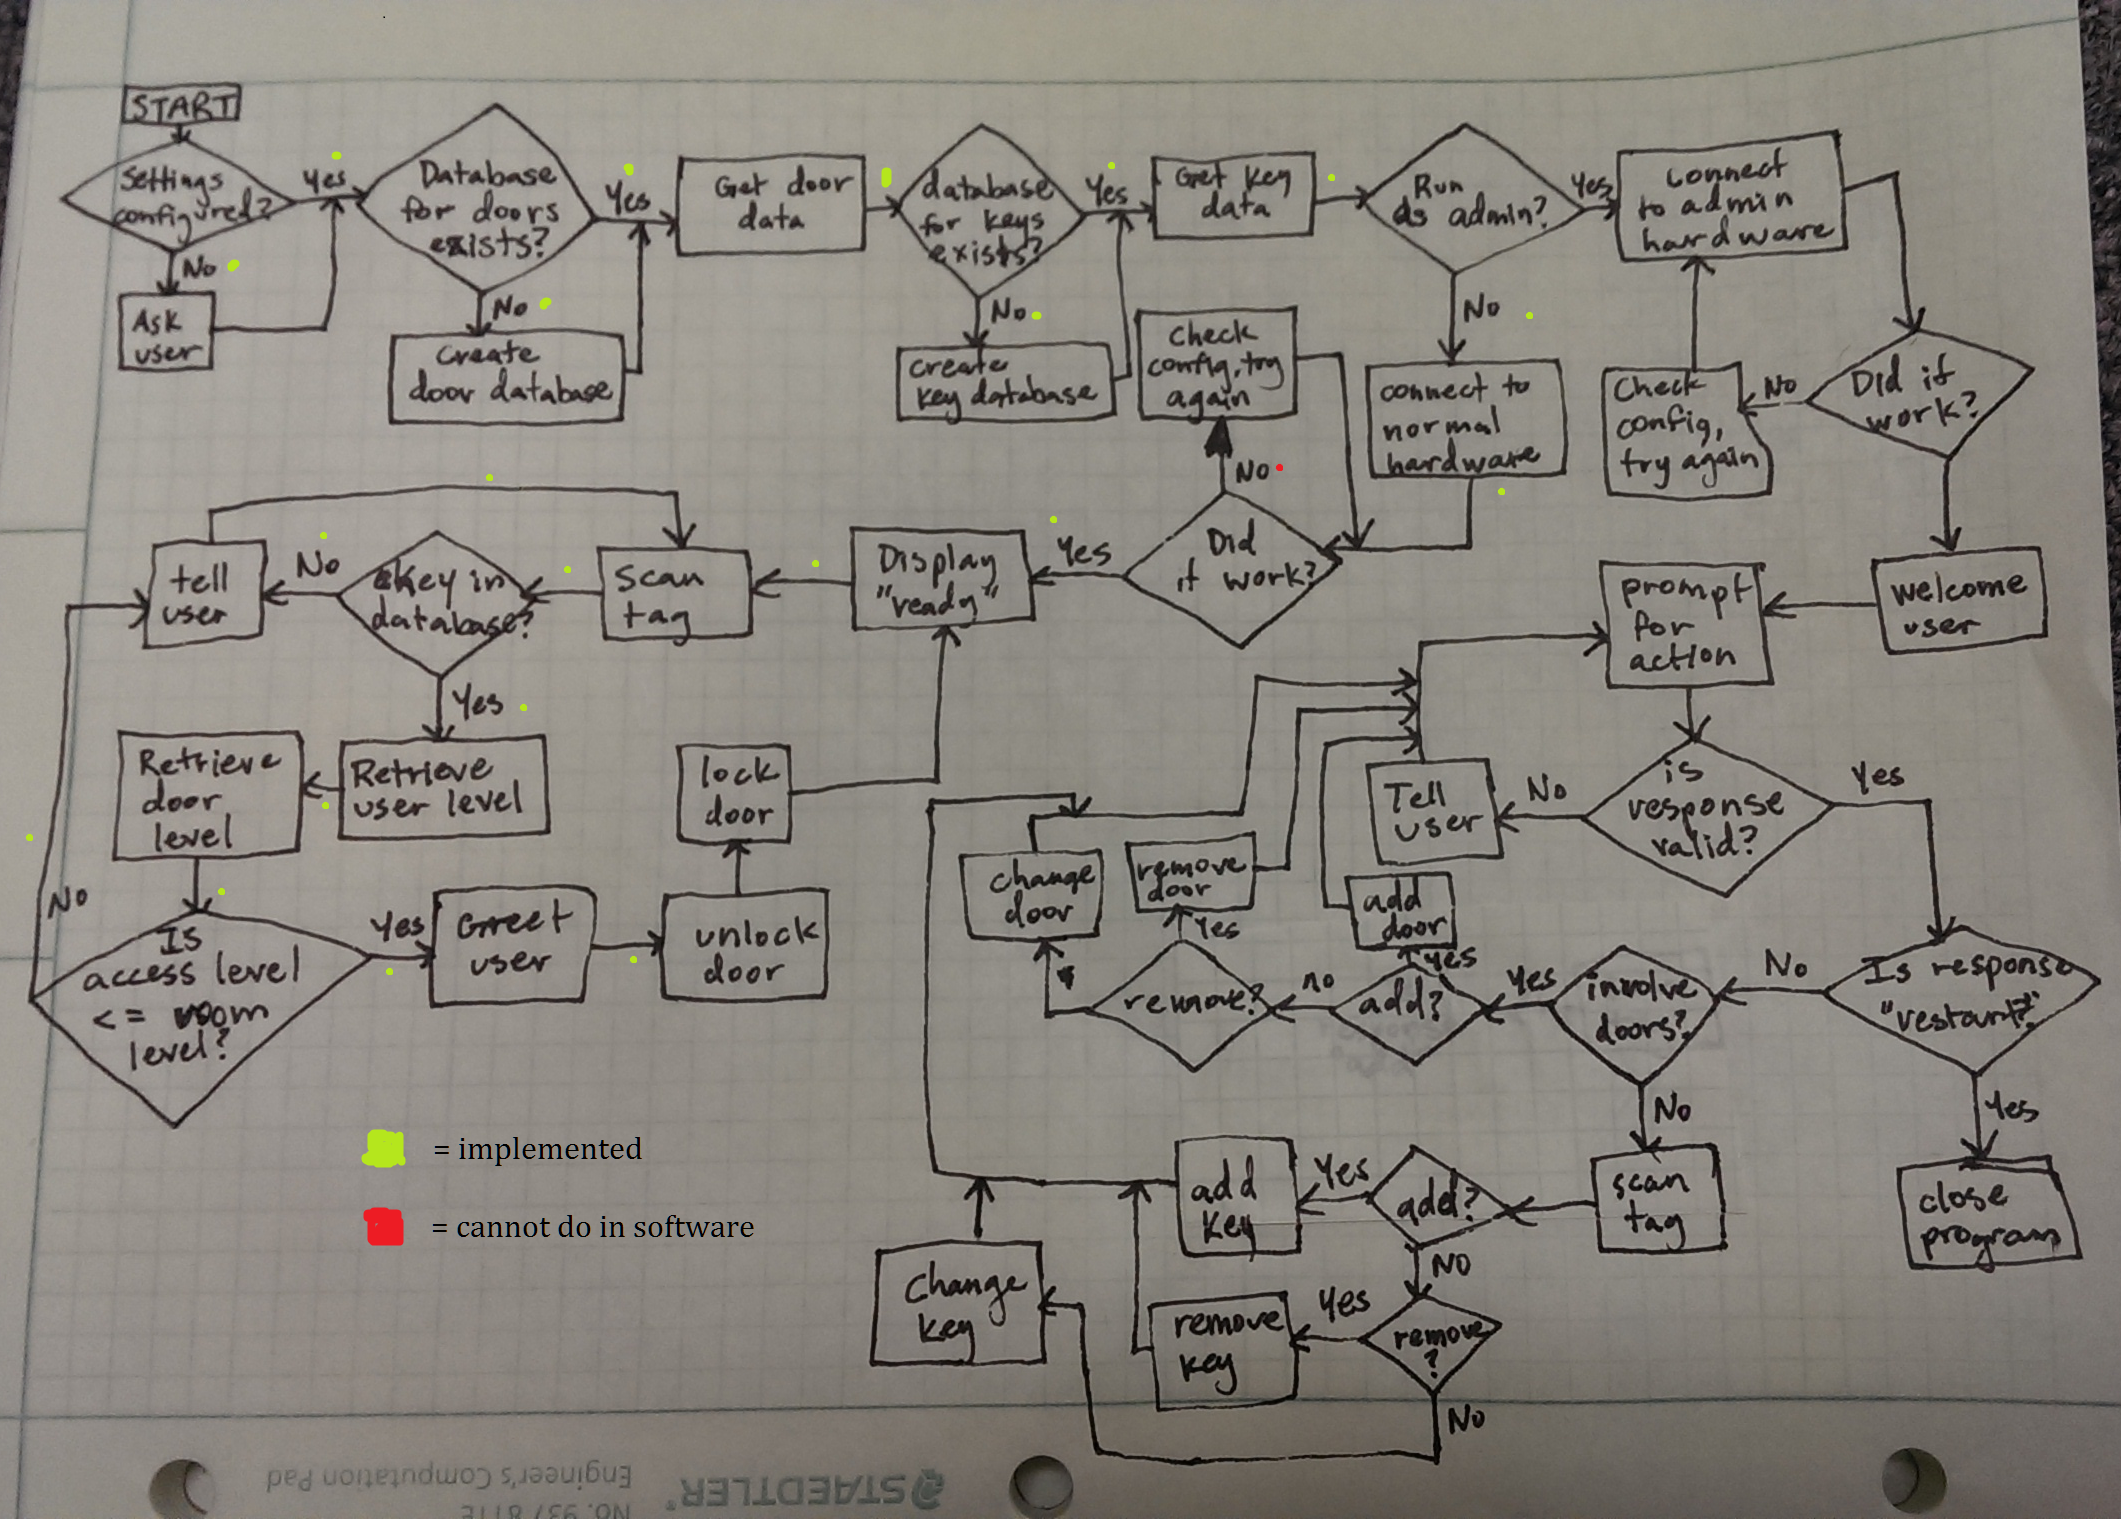 START
Settings
configured?
Yes
No
Ask
user
Database
for doors
exists?
Yes
No
Create
door database
Get door
data
database
for keys
exists?
Yes
No
create
key database
Get key
data
Run
as admin?
Yes
No
connect
to admin
hardware
Did it
work?
No
Check
config,
try again
welcome
user
connect to
normal
hardware
Did
it work?
No
Check
config, try
again
Yes
Display
"ready"
scan
tag
key in
database?
No
tell
user
Yes
Retrieve
user level
Retrieve
door
level
Is
access level
<= room
level?
No
Yes
Greet
user
unlock
door
lock
door
prompt
for
action
is
response
valid?
No
Tell
user
Yes
Is response
"restart?"
Yes
close
program
No
involve
doors?
Yes
add?
yes
add
door
no
remove?
Yes
remove
door
change
door
No
scan
tag
add?
Yes
add
key
No
remove
?
Yes
remove
key
No
Change
key
= implemented
= cannot do in software
STAEDTLER®
No. 937 811E
Engineer's Computation Pad